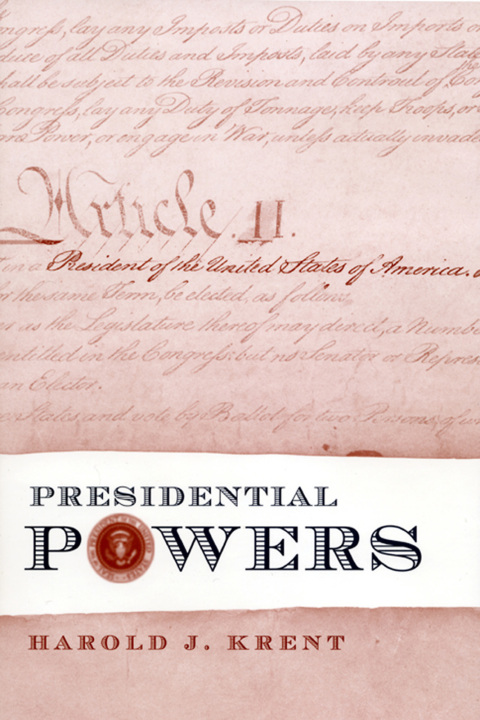 ngress, lay any Imposts or Duties on Imports or
duce of all Duties and Imposts, laid by any State
hall be subject to the Revision and Controul of Con
Congress, lay any Duty of Tonnage, keep Troops, or
Power, or engage in War, unless actually invade
Article. II.
in a President of the United States of America.
the same Term, be elected, as follow
as the Legislature thereof may direct, a Numbe
entitled in the Congress: but no Senator or Repres
an Elector.
States, and vote by Ballot for two Persons, of w
PRESIDENTIAL
POWERS
HAROLD J. KRENT